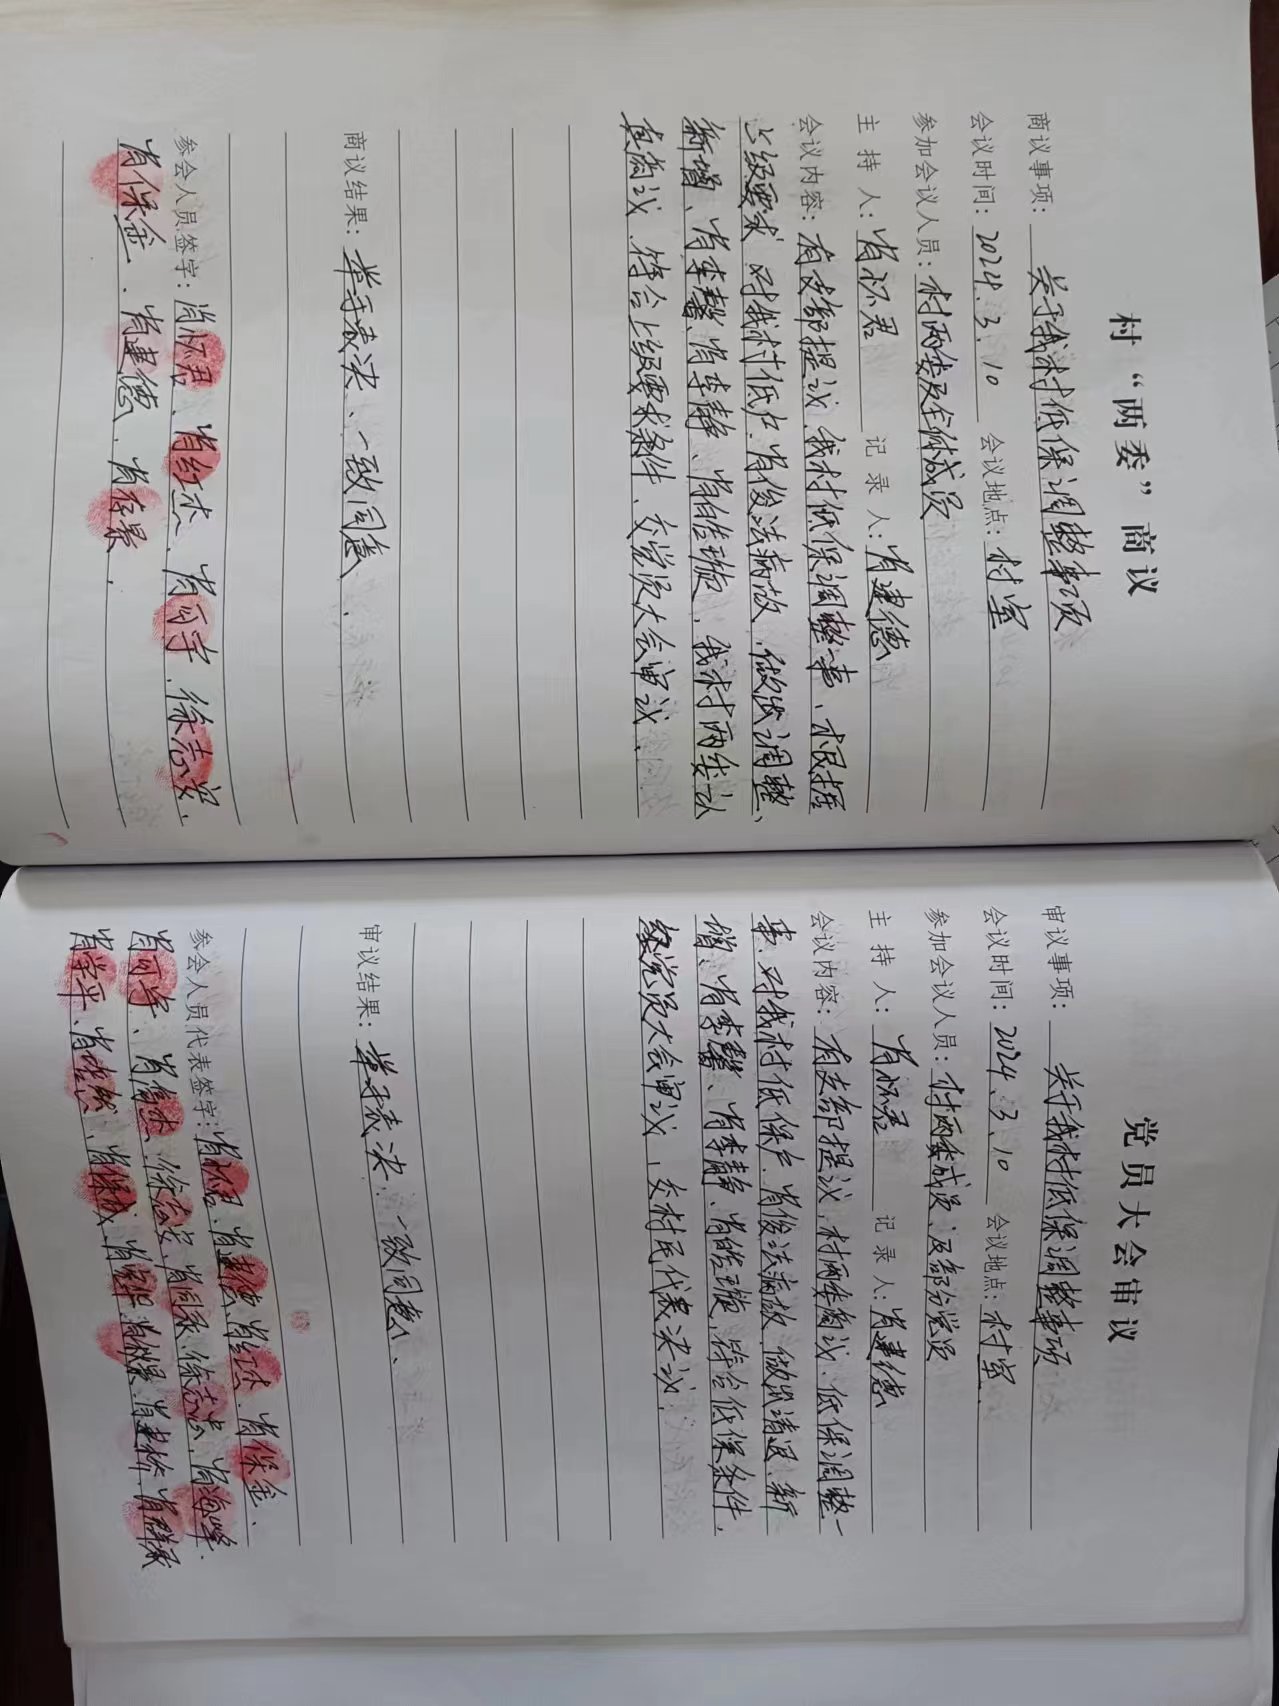 村“两委”商议
商议事项：关于我村低保调整事项
会议时间：2024.3.10 会议地点：村室
参加会议人员：村两委及全体成员
主持人：肖怀君 记录人：肖建德
会议内容：有支部提议、我村低保调整一事、根据
上级要求、对我村低户、肖俊法病故、做出调整、
新增、肖李馨、肖李静、肖皓璇、我村两委认
真商议、符合上级要求条件、交党员大会审议.
商议结果：举手表决、一致同意、
参会人员签字：肖怀君、肖红杰、肖可宇、徐志安、
肖保金、肖建德、肖存景、
党员大会审议
审议事项：关于我村低保调整事项
会议时间：2024.3.10 会议地点：村室
参加会议人员：村两委成员、及部份党员
主持人：肖怀君 记录人：肖建德
会议内容：有支部提议、村两委商议、低保调整一
事、对我村低保户、肖俊法病故、做出清退、新
增、肖李馨、肖李静、肖皓璇、符合低保条件、
经党员大会审议、交村民代表决议.
审议结果：举手表决、一致同意、
参会人员代表签字：肖怀君、肖建德、肖红杰、肖保金、
肖可宇、徐志安、肖海峰.
肖学平、肖保成、肖建桥、肖群成